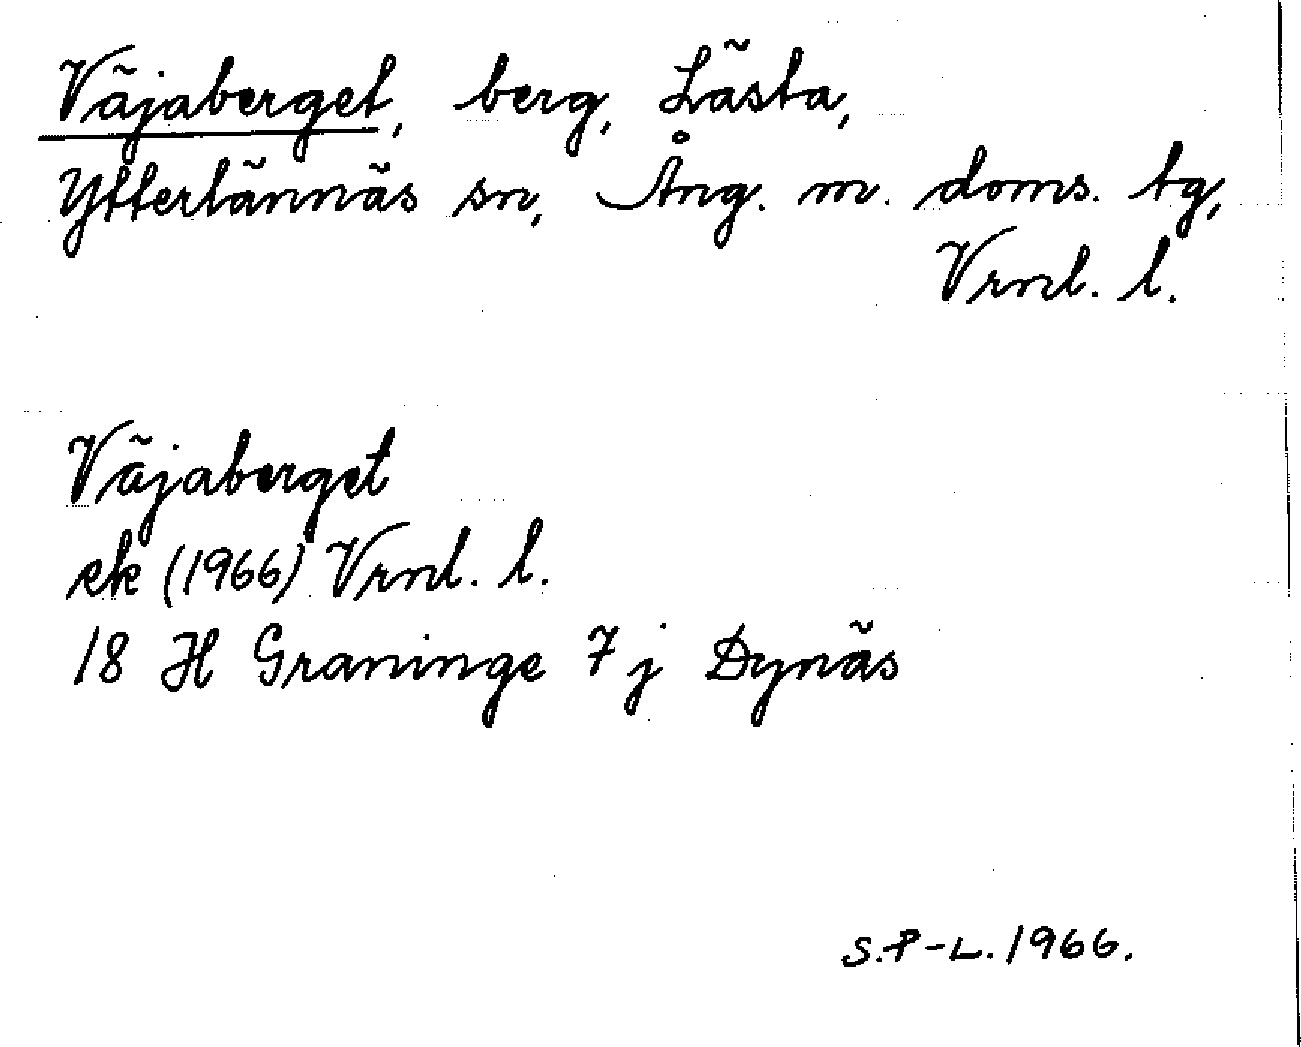 Väjaberget, berg, Lästa,
Ytterlännäs sn, Ång. m. doms. tg,
Vrnl. l.
Väjaberget
ek (1966) Vrnl. l.
18 H Graninge 7 j Dynäs
S.P-L. 1966.